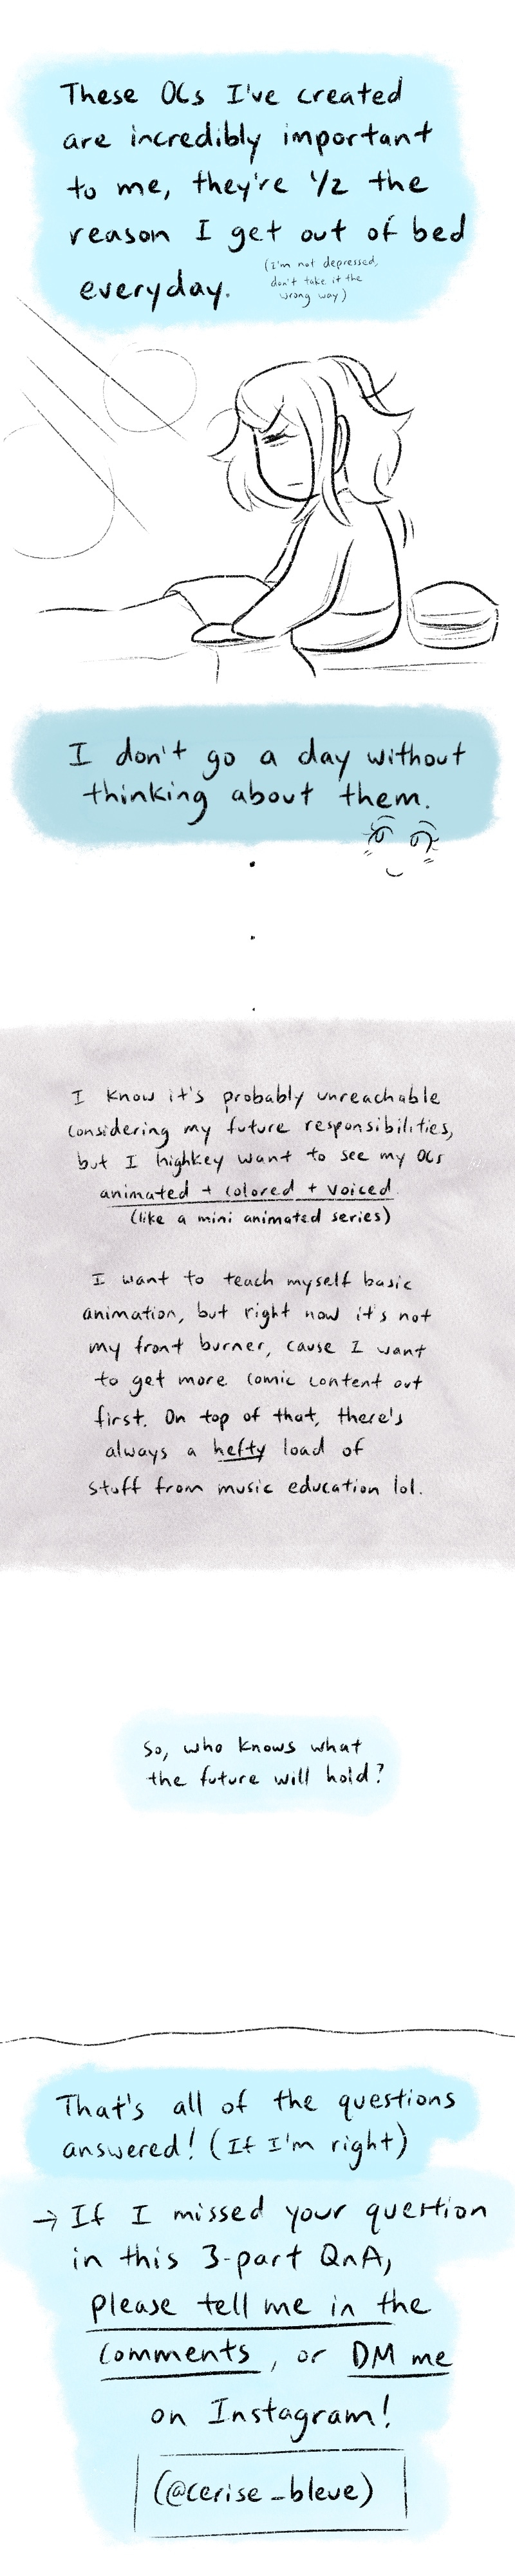 These OCs I've created
are incredibly important
to me, they're 1/2 the
reason I get out of bed
everyday.
(I'm not depressed,
don't take it the
wrong way)
I don't go a day without
thinking about them.
I know it's probably unreachable
considering my future responsibilities,
but I highkey want to see my OCs
animated + colored + voiced
(like a mini animated series)
I want to teach myself basic
animation, but right now it's not
my front burner, cause I want
to get more comic content out
first. On top of that, there's
always a hefty load of
stuff from music education lol.
So, who knows what
the future will hold?
That's all of the questions
answered! (If I'm right)
→ If I missed your question
in this 3-part QnA,
please tell me in the
comments, or DM me
on Instagram!
(@cerise_bleue)